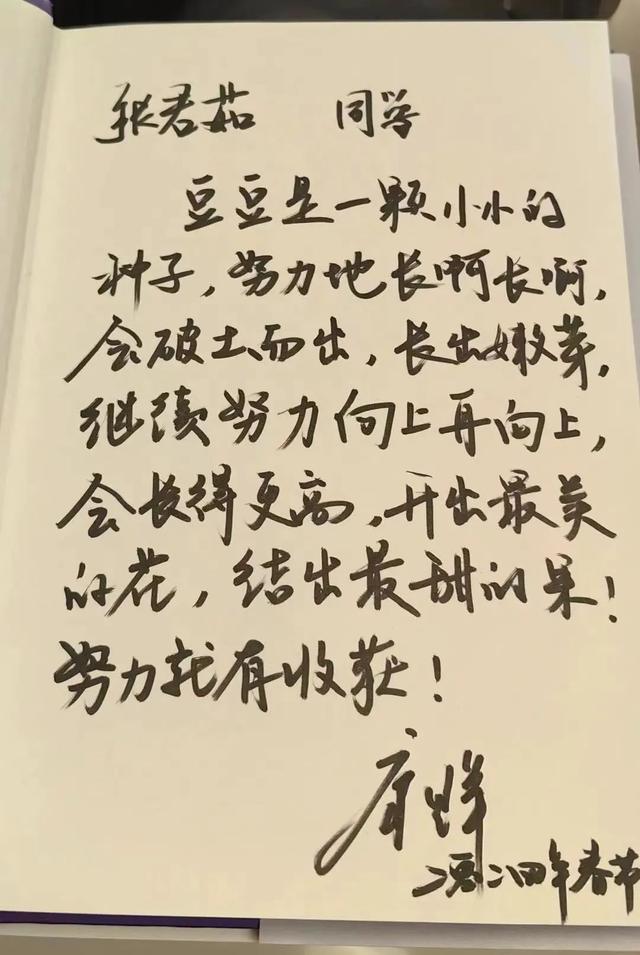 张君茹 同学
豆豆是一颗小小的
种子,努力地长啊长啊,
会破土而出,长出嫩芽,
继续努力向上再向上,
会长得更高,开出最美
的花,结出最甜的果!
努力就有收获!
二〇二四年春节